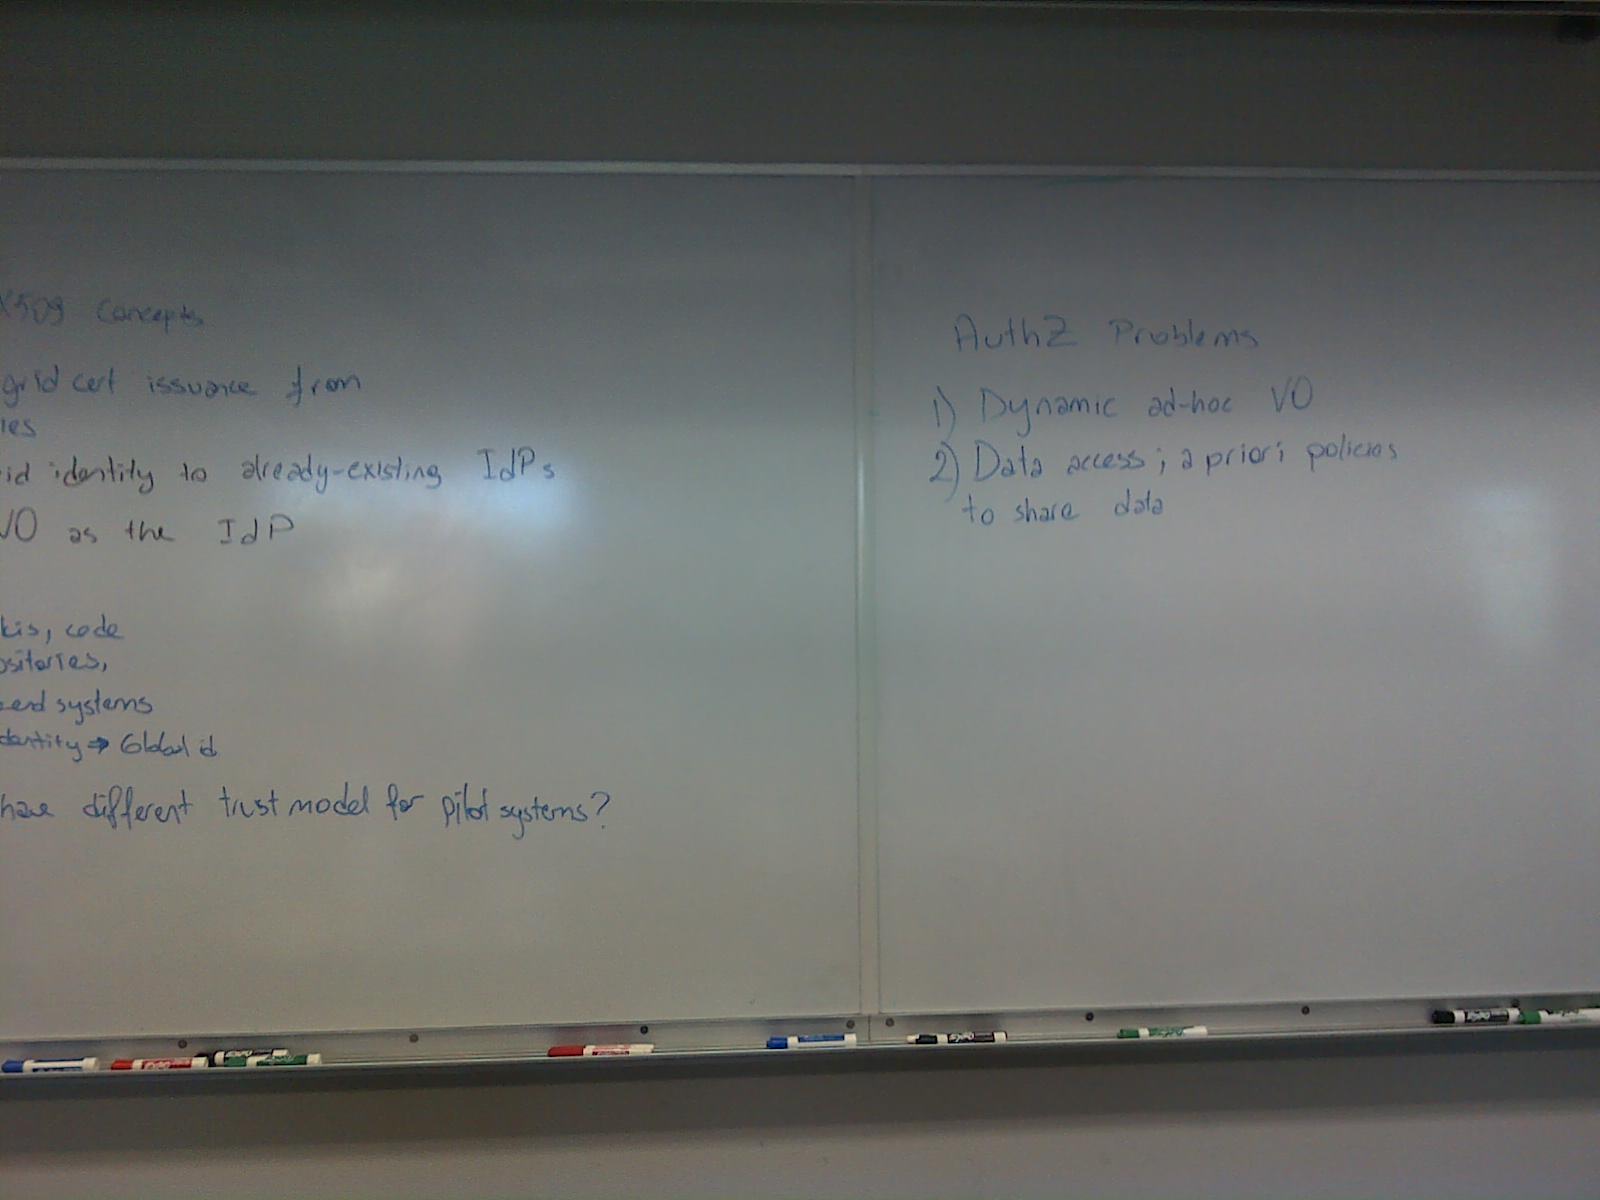 X509 Concepts
grid cert issuance from
ies
id identity to already-existing IdPs
VO as the IdP
kis, code
ositories,
end systems
dentity → Global id
have different trust model for pilot systems?
AuthZ Problems
1) Dynamic ad-hoc VO
2) Data access; a priori policies
to share data